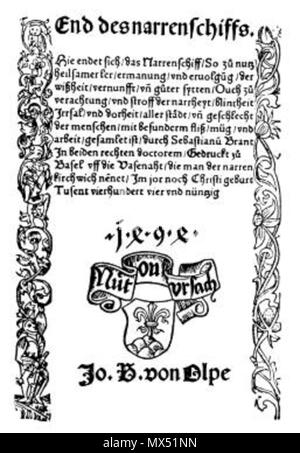 End des narrenschiffs.
Hie endet sich/das Narrenschiff/So zů nutz
heilsamer ler/ermanung/vnd ervolgūg/der
wißheit/vernunfft/vn̄ gůter sytten/Ouch zů
verachtung/vnd stroff der narrheyt/blintheit
Irrsal/vnd dorheit/aller städt/vn̄ geschlecht
der menschen/mit besunderm fliß/müg/vnd
arbeit/gesamlet ist/durch Sebastianū Brant
In beiden rechten doctorem/Gedruckt zů
Basel vff die Vasenaht/die man der narren
kirchwich nēnet/Im jor noch Christi geburt
Tusent vierhundert vier vnd nüntzig
.j.4.9.4.
Nüt on vrsach
Jo. B. von Olpe
alamy
Image ID: MX51NN
www.alamy.com